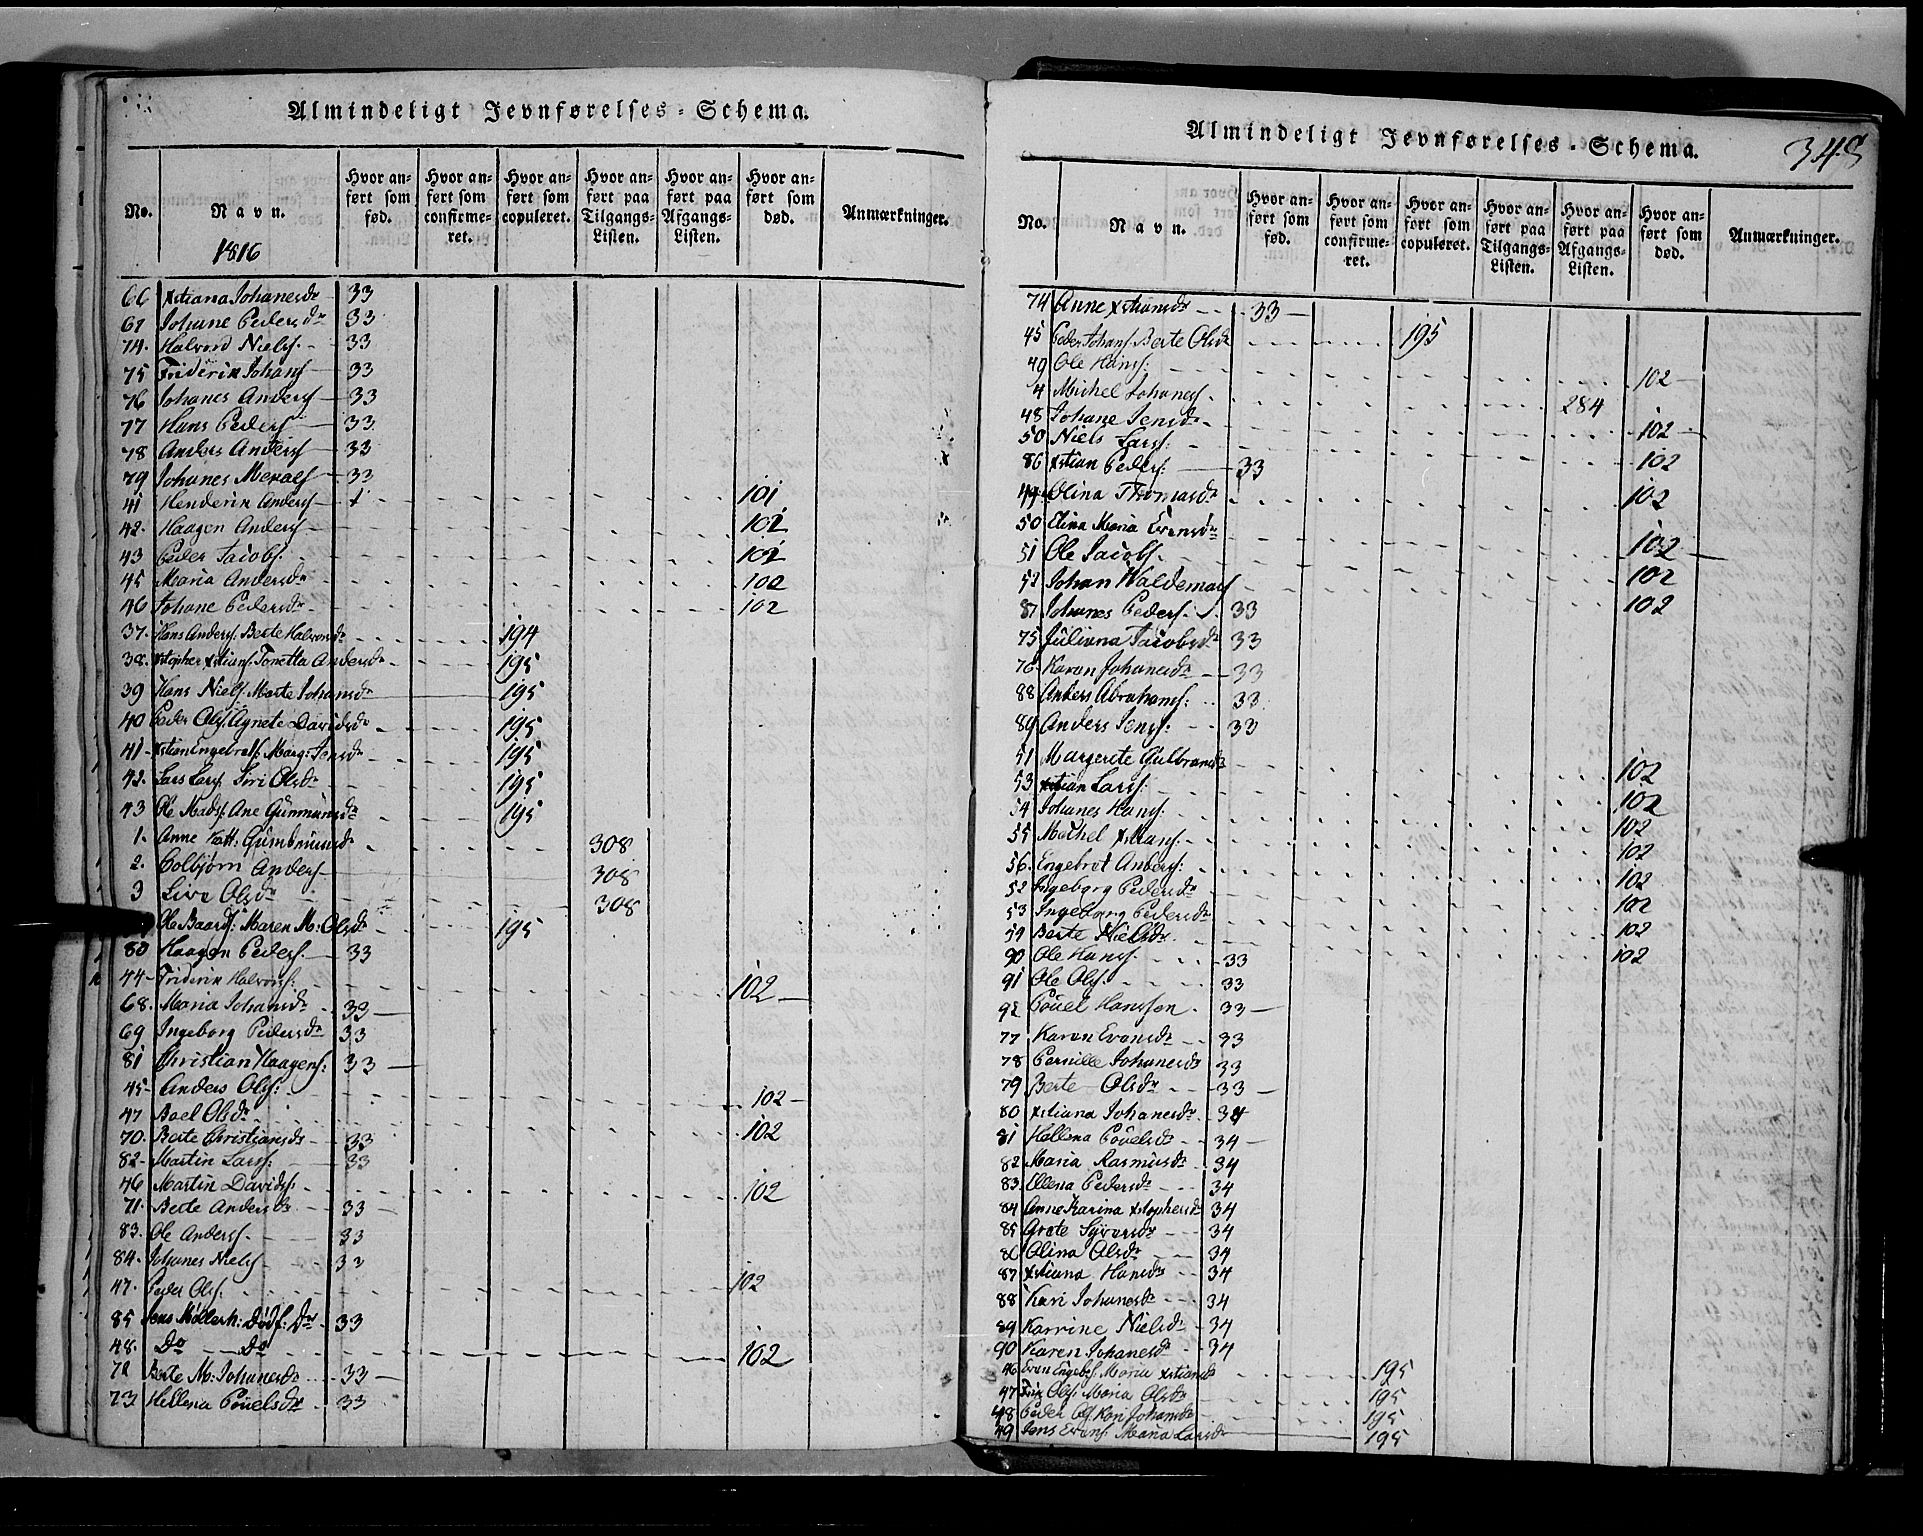 Almindeligt Jevnførelses-Schema.
No.
Navn.
1816
Hvor anført som fød.
Hvor anført som confirmeret.
Hvor anført som copuleret.
Hvor anført paa Tilgangs-Listen.
Hvor anført paa Afgangs-Listen.
Hvor anført som død.
Anmærkninger.
66 Xstiana Johanesdr 33
67 Johane Pedersdr 33
74. Halvord Nielss. 33
75 Friderik Johans 33
76 Johanes Anderss 33
77 Hans Peders 33
78 Anders Anderss 33
79 Johanes 33
41 Henderik Anderss 101
42. Haagen Anderss 102
43 Peder Jacobs: 102
45 Maria Andersdr 102
46 Johane Pedersdr 102
37. Hans Anders: Berte Halvorsdr 194
38. Xstopher Xstians: Tonetta Andersdr 195
39 Hans Niels: Marte Johansdr 195
40 Peder Ols: Agnete Davidsdr 195
41- Xstian Engebrets: Marg: Jensdr 195
42. Lars Lars: Siri Olsdr 195
43 Ole Mads: Ane Gunmunsdr 195
1. Anne Katt: Gumdmunsdr 308
2. Colbjørn Anderss 308
3 Live Olsdr 308
Ole Baards: Maren M: Olsdr 195
80 Haagen Peders. 33
44- Friderik Halvors: 102
68. Maria Johansdr 33
69 Ingeborg Pedersdr 33
81 Christian Haagens: 33
45- Anders Ols: 102
47 Boel Olsdr 102
70. Berte Christiansdr 33
82- Martin Lars: 33
46 Martin Davids: 102
71. Berte Andersdr 33
83. Ole Anders: 33
84. Johanes Niels 33
47. Peder Ols: 102
85 Jens Møllerh: Dødf: Dr 33
48. Do Do 102
72 Berte M: Johanesdr 33
73 Hellena Pouelsdr 33
Almindeligt Jevnførelses-Schema.
348
No.
Navn.
Hvor anført som fød.
Hvor anført som confirmeret.
Hvor anført som copuleret.
Hvor anført paa Tilgangs-Listen.
Hvor anført paa Afgangs-Listen.
Hvor anført som død.
Anmærkninger.
74 Anne Xstiansdr 33
45 Peder Johans: Berte Olsdr 195
49 Ole Hans: 102
4 Michel Johaness. 284
48 Johane Jensdr 102
50 Niels Lars: 102
86 Xstian Peders: 33
49 Olina Thomasdr 102
50 Elina Maria Evensdr 102
51 Ole Jacobs 102
52 Johan Waldemars 102
87 Johanes Peders: 33
75 Juliana Jacobsdr 33
76 Karan Johanesdr 33
88 Anders Abrahams: 33
89 Anders Jens: 33
51 Margerete Gulbransdr 102
53 Xstian Lars: 102
54 Johanes Hans: 102
55 Michel Xstians: 102
56. Engebret Anders: 102
52 Ingeborg Pedersdr 102
53 Ingeborg Pedersdr 102
54 Berte Nielsdr 102
90 Ole Hans: 33
91 Ole Ols. 33
92 Pouel Hanssen. 33
77 Karen Evensdr 33
78 Pernille Johanesdr 33
79 Berte Olsdr 33
80 Xstiana Johanesdr 34
81 Hellena Pouelsdr 34
82 Maria Rasmusdr 34
83. Ellena Pedersdr 34
84 Anne Karina Xstophersdr 34
85 Grete Syversdr 34
86 Olina Olsdr 34
87 Xstiana Hansdr 34
88 Kari Johanesdr 34
89 Karrine Nielsdr 34
90 Karen Johanesdr 34
46 Even Engebs: Maria Xstiansdr 195
47 Ols: Maria Olsdr 195
48 Peder Ols: Kari Johansdr 195
49 Jens Evens: Maria Larsdr 195